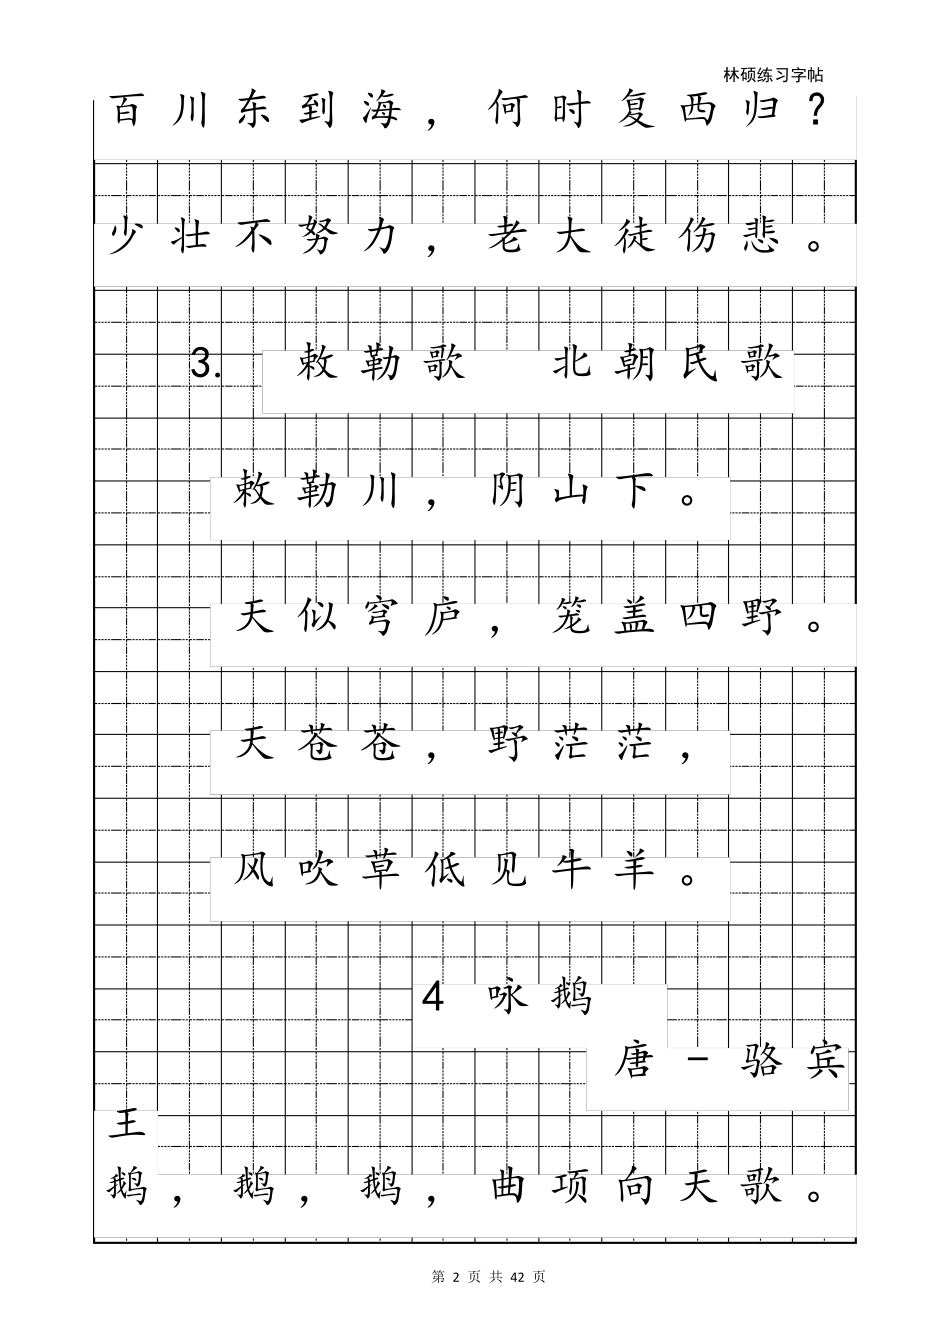 林硕练习字帖
百川东到海，何时复西归？
少壮不努力，老大徒伤悲。
3. 敕勒歌 北朝民歌
敕勒川，阴山下。
天似穹庐，笼盖四野。
天苍苍，野茫茫，
风吹草低见牛羊。
4 咏鹅
唐－骆宾
王
鹅，鹅，鹅，曲项向天歌。
第 2 页 共 42 页